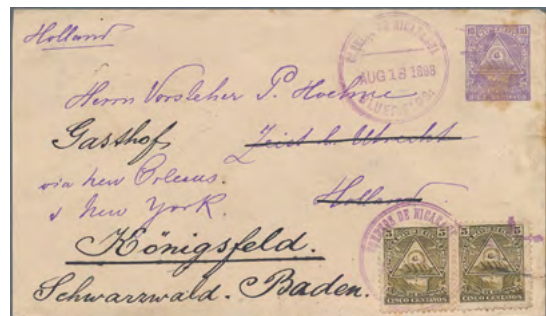 Holland
10 10
DIEZ CENTAVOS
CORREOS DE NICARAGUA
AUG 18 1898
BLUEFIELDS
Herrn Vorsteher P. Hoehne
Gasthof Zeist b. Utrecht
via New Orleans.
& New York. Holland.
Königsfeld.
Schwarzwald. Baden.
CORREOS DE NICARAGUA
5 5 5 5
CINCO CENTAVOS CINCO CENTAVOS